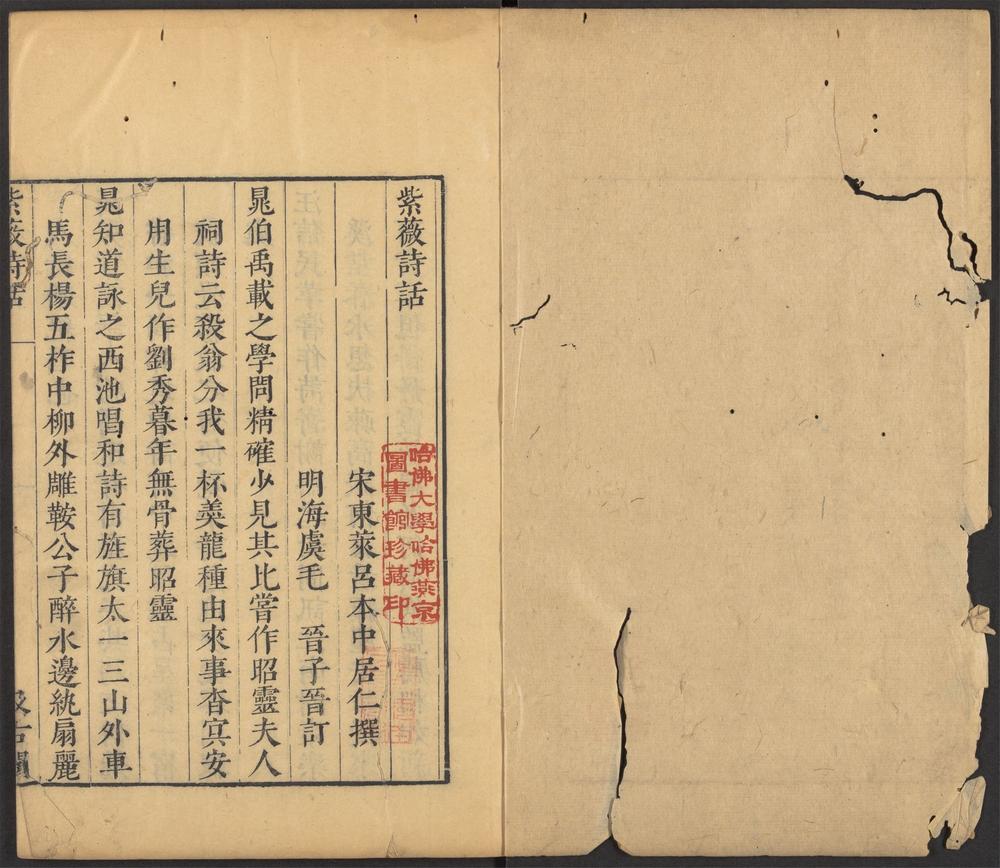 紫薇詩話
宋東萊呂本中居仁撰
明海虞毛　晉子晉訂
晁伯禹載之學問精確少見其比嘗作昭靈夫人
祠詩云殺翁分我一杯羹龍種由來事杳冥安
用生兒作劉秀暮年無骨葬昭靈
晁知道詠之西池唱和詩有旌旗太一三山外車
馬長楊五柞中柳外雕鞍公子醉水邊紈扇麗
紫薇詩話
汲古閣
哈佛大學哈佛燕京
圖書館珍藏印